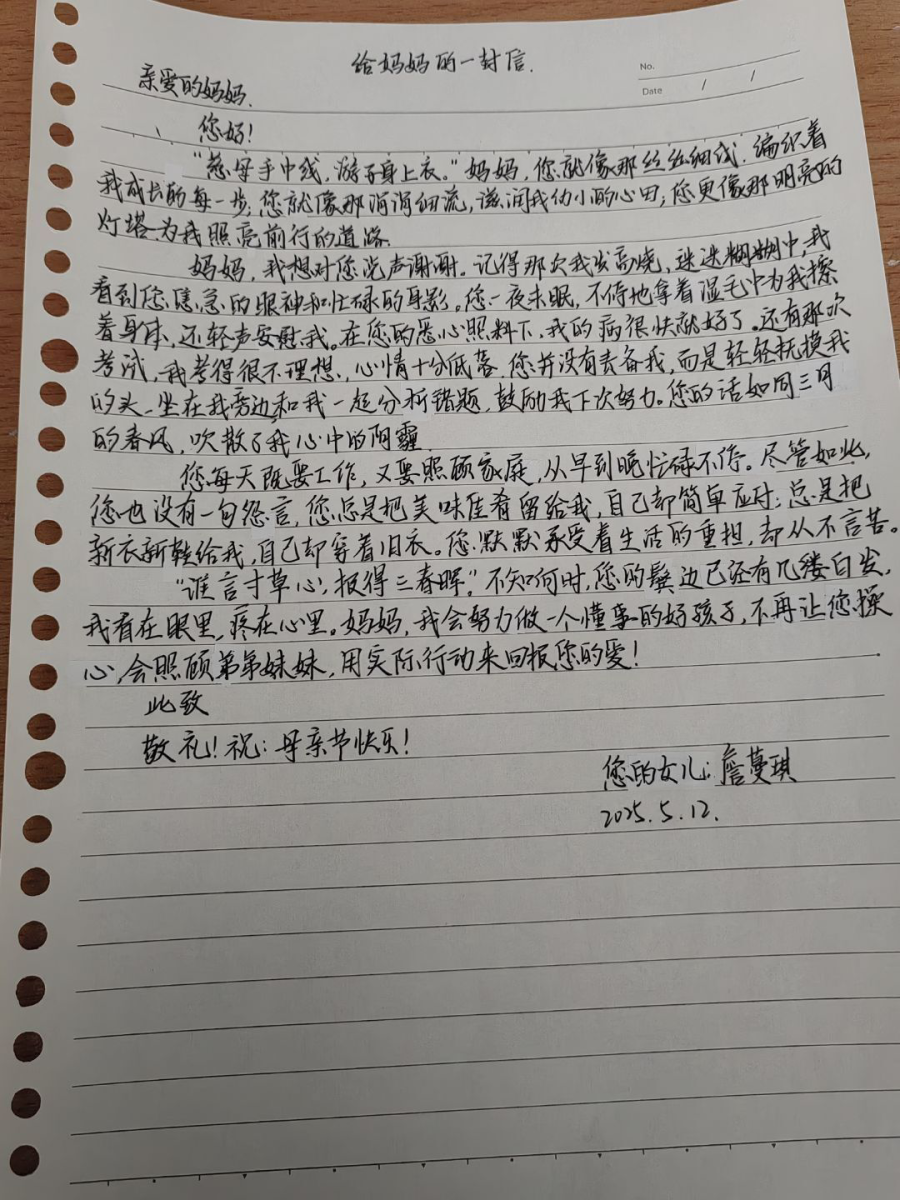 给妈妈的一封信.
No.
Date / /
亲爱的妈妈.
您好!
"慈母手中线,游子身上衣。"妈妈,您就像那丝丝细线.编织着
我成长的每一步;您就像那涓涓细流,滋润我幼小的心田;您更像那明亮的
灯塔.为我照亮前行的道路.
妈妈,我想对您说声谢谢。记得那次我发高烧,迷迷糊糊中,我
看到您焦急的眼神和忙碌的身影。您一夜未眠,不停地拿着湿毛巾为我擦
着身体,还轻声安慰我。在您的悉心照料下,我的病很快就好了。还有那次
考试,我考得很不理想,心情十分低落.您并没有责备我,而是轻轻抚摸我
的头.坐在我旁边和我一起分析错题,鼓励我下次努力。您的话如同三月
的春风,吹散了我心中的阴霾.
您每天既要工作,又要照顾家庭,从早到晚忙碌不停。尽管如此,
您也没有一句怨言,您总是把美味佳肴留给我,自己却简单应付;总是把
新衣新鞋给我,自己却穿着旧衣。您默默承受着生活的重担,却从不言苦。
"谁言寸草心,报得三春晖。"不知何时,您的鬓边已经有几缕白发,
我看在眼里,疼在心里。妈妈,我会努力做一个懂事的好孩子,不再让您操
心,会照顾弟弟妹妹,用实际行动来回报您的爱!
此致
敬礼!祝:母亲节快乐!
您的女儿:詹蔓琪
2025.5.12.